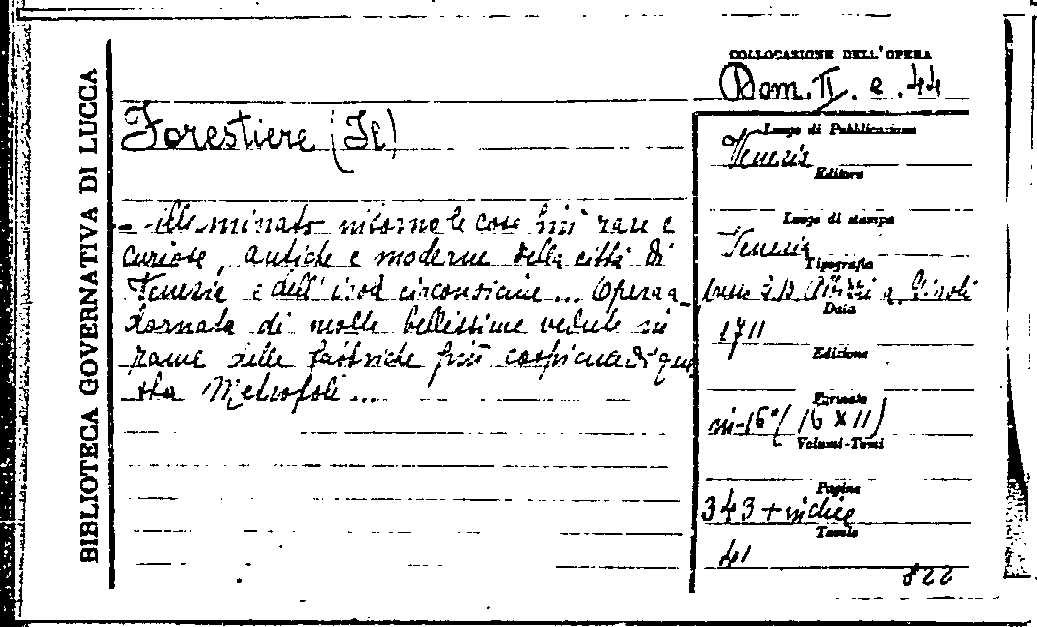 BIBLIOTECA GOVERNATIVA DI LUCCA
COLLOCAZIONE DELL'OPERA
Dom. II. e. 44
Forestiere (Il)
- illuminato intorno le cose più rare e
curiose, antiche e moderne della città di
Venezia e dell'isole circonvicine... Opera a-
dornata di molte bellissime vedute in
rame delle fabbriche più cospicue di que
sta Metropoli...
Luogo di Pubblicazione
Venezia
Editore
Luogo di stampa
Venezia
Tipografia
presso G.B. Albrizzi q. Girol.
Data
1711
Edizione
Formato
in-16° (16 X 11)
Volumi-Tomi
Pagine
343 + indice
Tavole
41
822